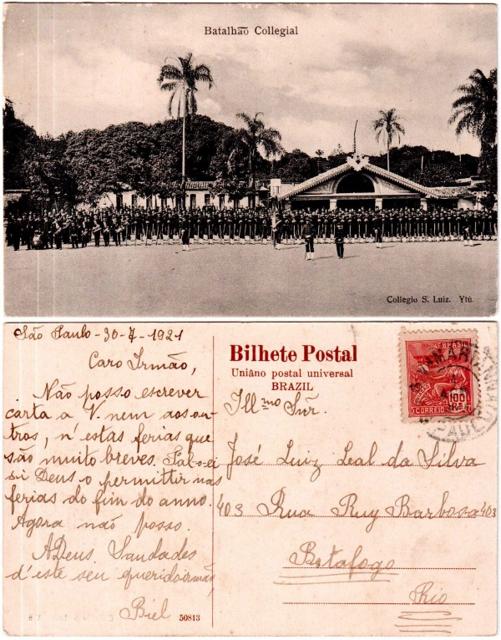 Batalhão Collegial
Collegio S. Luiz. Ytú.
São Paulo - 30-7-1921
Caro Irmão,
Não posso escrever
carta a V. nem aos ou-
tros, n'estas ferias que
são muito breves.
si Deus o permittir nas
ferias do fim do anno.
Agora não posso.
ADeus. Saudades
d'este seu querido irmão,
Biel
50813
Bilhete Postal
Uniäno postal universal
BRAZIL
Illmo Snr.
José Luiz Leal da Silva
403 Rua Ruy Barbosa 403
Botafogo
Rio
CORREIO
100